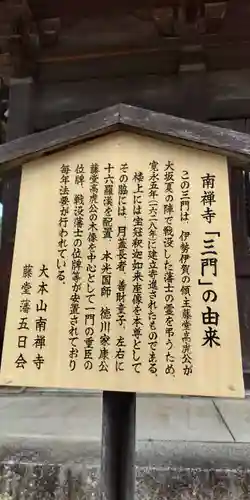 南禅寺「三門」の由来
この三門は、伊勢伊賀の領主藤堂高虎公が
大坂夏の陣で戦没した藩士の霊を弔うため、
寛永五年(一六二八年)に建立寄進されたものである。
楼上には宝冠釈迦如来座像を本尊として
その脇には、月蓋長者、善財童子、左右に
十六羅漢を配置、本光国師、徳川家康公、
藤堂高虎公の木像を中心として一門の重臣の
位牌、戦没藩士の位牌等が安置されており
毎年法要が行われている。
大本山南禅寺
藤堂藩五日会